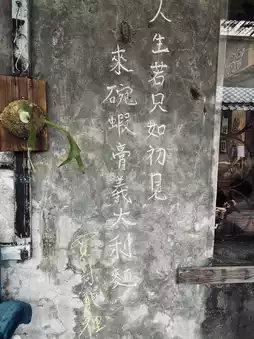 人生若只如初見
來碗蝦膏義大利麵